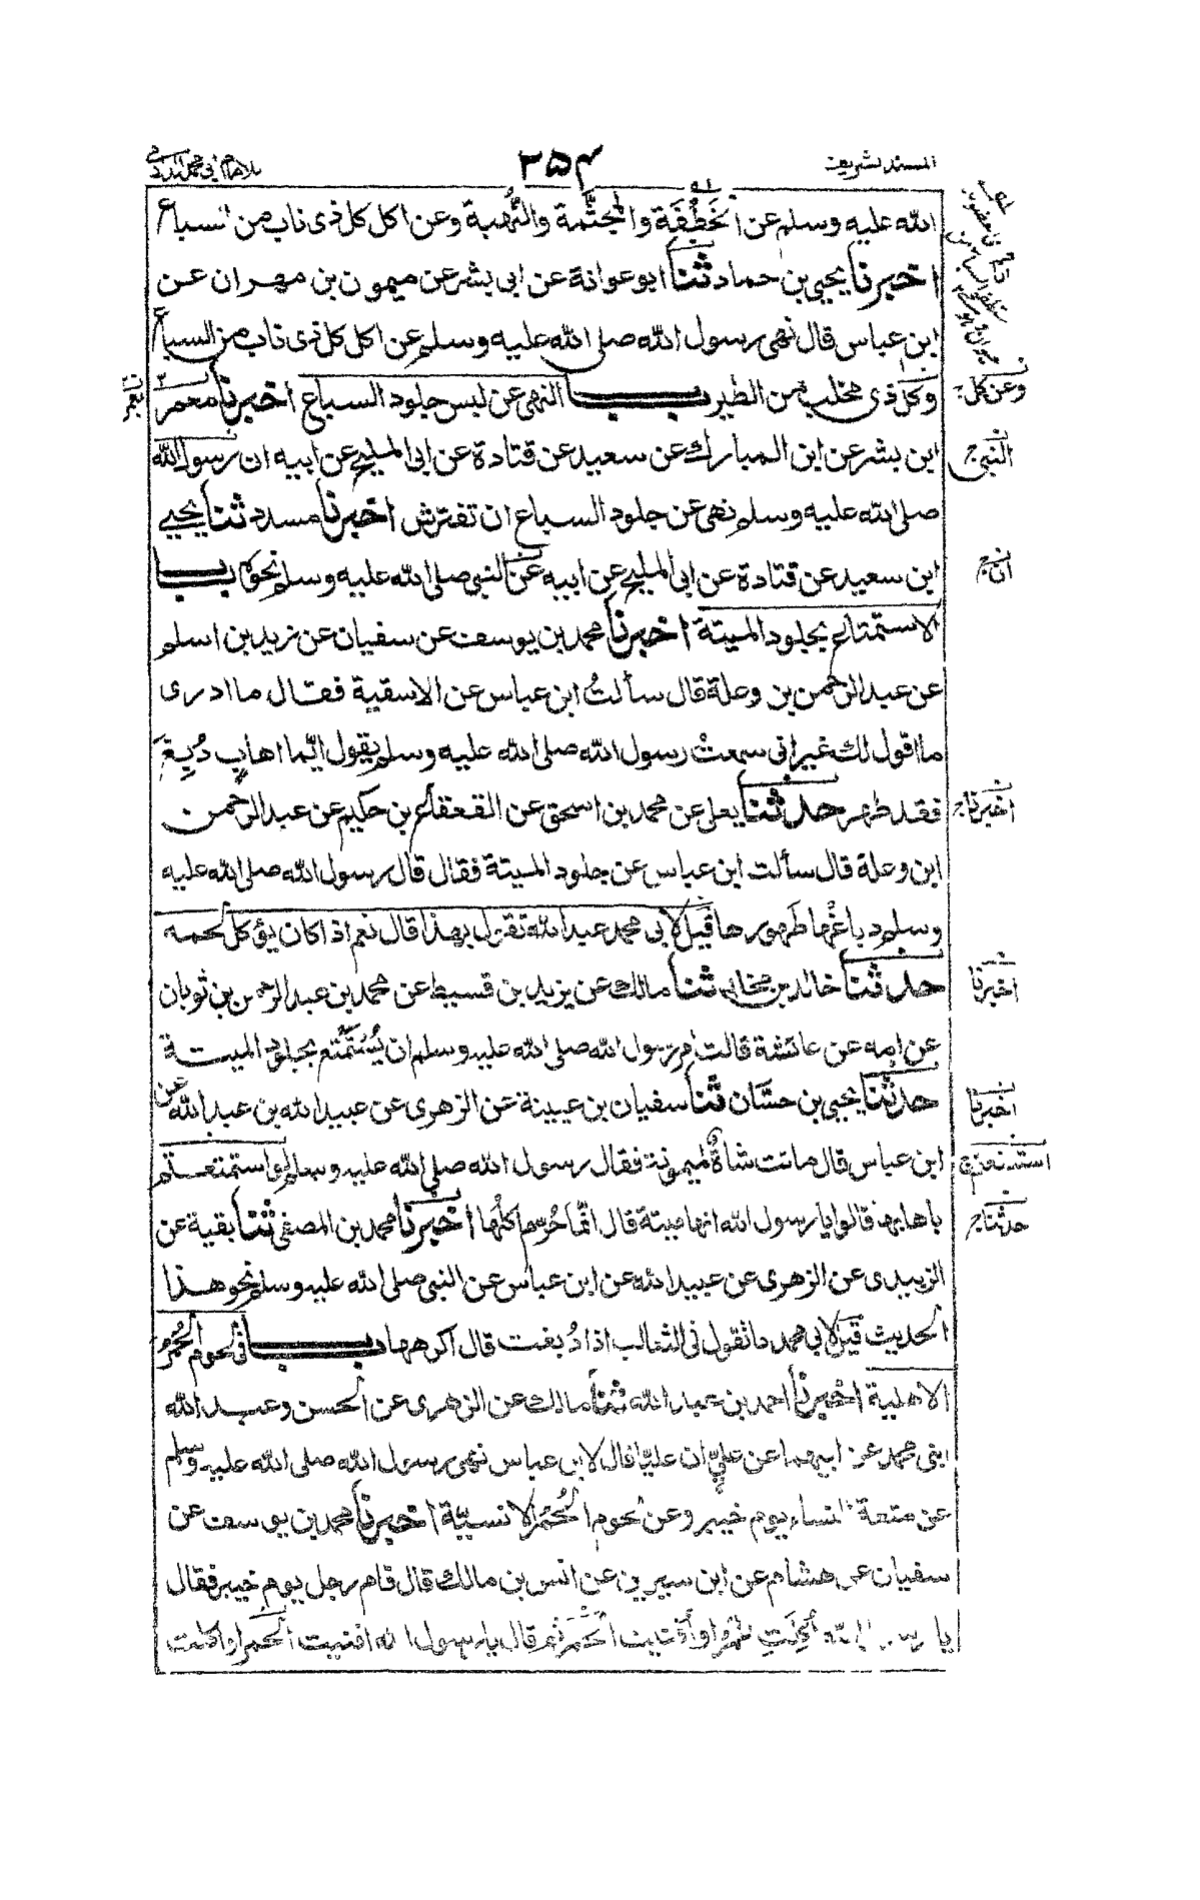 المسند الشريف
٢٥٤
للامام ابي محمد الدارمي
الله عليه وسلم عن الخَطْفَة والمجثَّمة والنُّهبة وعن اكل كل ذى ناب من السباع
اخبرنا يحيى بن حماد ثنا ابو عوانة عن ابى بشر عن ميمون بن مهران عن
ابن عباس قال نهى رسول الله صلى الله عليه وسلم عن اكل كل ذى ناب من السباع
وكل ذى مخلب من الطير باب النهى عن لبس جلود السباع اخبرنا معمر
ابن بشر عن ابن المبارك عن سعيد عن قتادة عن ابى المليح عن ابيه ان رسول الله
صلى الله عليه وسلم نهى عن جلود السباع ان تفترش اخبرنا مسدد ثنا يحيى
ابن سعيد عن قتادة عن ابى المليح عن ابيه عن النبى صلى الله عليه وسلم نحوه باب
الاستمتاع بجلود الميتة اخبرنا محمد بن يوسف عن سفيان عن زيد بن اسلم
عن عبد الرحمن بن وعلة قال سألتُ ابن عباس عن الاسقية فقال ما ادرى
ما اقول لك غير انى سمعتُ رسول الله صلى الله عليه وسلم يقول ايّما اهابٍ دُبِغَ
فقد طهر حدثنا يعلى عن محمد بن اسحق عن القعقاع بن حكيم عن عبد الرحمن
ابن وعلة قال سألت ابن عباس عن جلود الميتة فقال قال رسول الله صلى الله عليه
وسلم دباغُها طَهورها قيل لابى محمد عبد الله تقول بهذا قال نعم اذا كان يؤكل لحمه
حدثنا خالد بن مخلد ثنا مالك عن يزيد بن قسيط عن محمد بن عبد الرحمن بن ثوبان
عن امه عن عائشة قالت امر رسول الله صلى الله عليه وسلم ان يُسْتَمْتَع بجلود الميتة
حدثنا يحيى بن حسَّان ثنا سفيان بن عيينة عن الزهرى عن عبيد الله بن عبد الله عن
ابن عباس قال ماتت شاةٌ لميمونة فقال رسول الله صلى الله عليه وسلم لو استمتعتم
باهابها قالوا يا رسول الله انها ميتة قال انَّما حُرِّم اكلُها اخبرنا محمد بن المصفى ثنا بقية عن
الزبيدى عن الزهرى عن عبيد الله عن ابن عباس عن النبى صلى الله عليه وسلم نحو هذا
الحديث قيل لابى محمد ما تقول فى الثعالب اذا دُبغت قال اكرهها باب فى لحوم الحُمُر
الاهلية اخبرنا احمد بن عبد الله ثنا مالك عن الزهرى عن الحسن وعبد الله
ابنى محمد عن ابيهما عن علىٍّ ان عليًّا قال لابن عباس نهى رسول الله صلى الله عليه وسلم
عن متعة النساء يوم خيبر وعن لحوم الحُمُر الانسيّة اخبرنا محمد بن يوسف عن
سفيان عن هشام عن ابن سيرين عن انس بن مالك قال قام رجل يوم خيبر فقال
يا رسول الله أُكِلَتِ الحُمُرُ او أُفنيت الحُمُر ثم قال يا رسول الله افنيت الحُمُر او اكلت
وعن كل
النبى
ان
اخبرنا
اخبرنا
اخبرنا
حدثنا